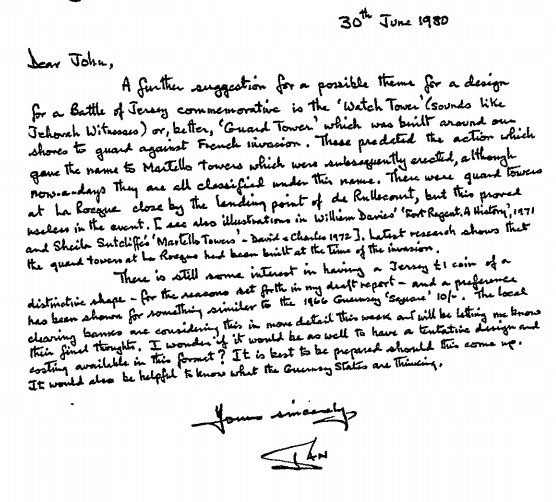 30th June 1980
Dear John,
A further suggestion for a possible theme for a design
for a Battle of Jersey commemorative is the 'Watch Tower' (sounds like
Jehovah Witnesses) or, better, 'Guard Tower' which was built around our
shores to guard against French invasion. These predated the action which
gave the name to Martello Towers which were subsequently erected, although
now-a-days they are all classified under this name. There were guard towers
at La Rocque close by the landing point of de Rullecourt, but this proved
useless in the event. [See also illustrations in William Davies' 'Fort Regent, A History', 1971
and Sheila Sutcliffe's 'Martello Towers' - David & Charles 1972]. Latest research shows that
the guard towers at La Rocque had been built at the time of the invasion.
There is still some interest in having a Jersey £1 coin of a
distinctive shape - for the reasons set forth in my draft report - and a preference
has been shown for something similar to the 1966 Guernsey 'square' 10/-. The local
clearing banks are considering this in more detail this week and will be letting me know
their final thoughts. I wonder if it would be as well to have a tentative design and
costing available in this format? It is best to be prepared should this come up.
It would also be helpful to know what the Guernsey States are thinking.
Yours sincerely,
IAN